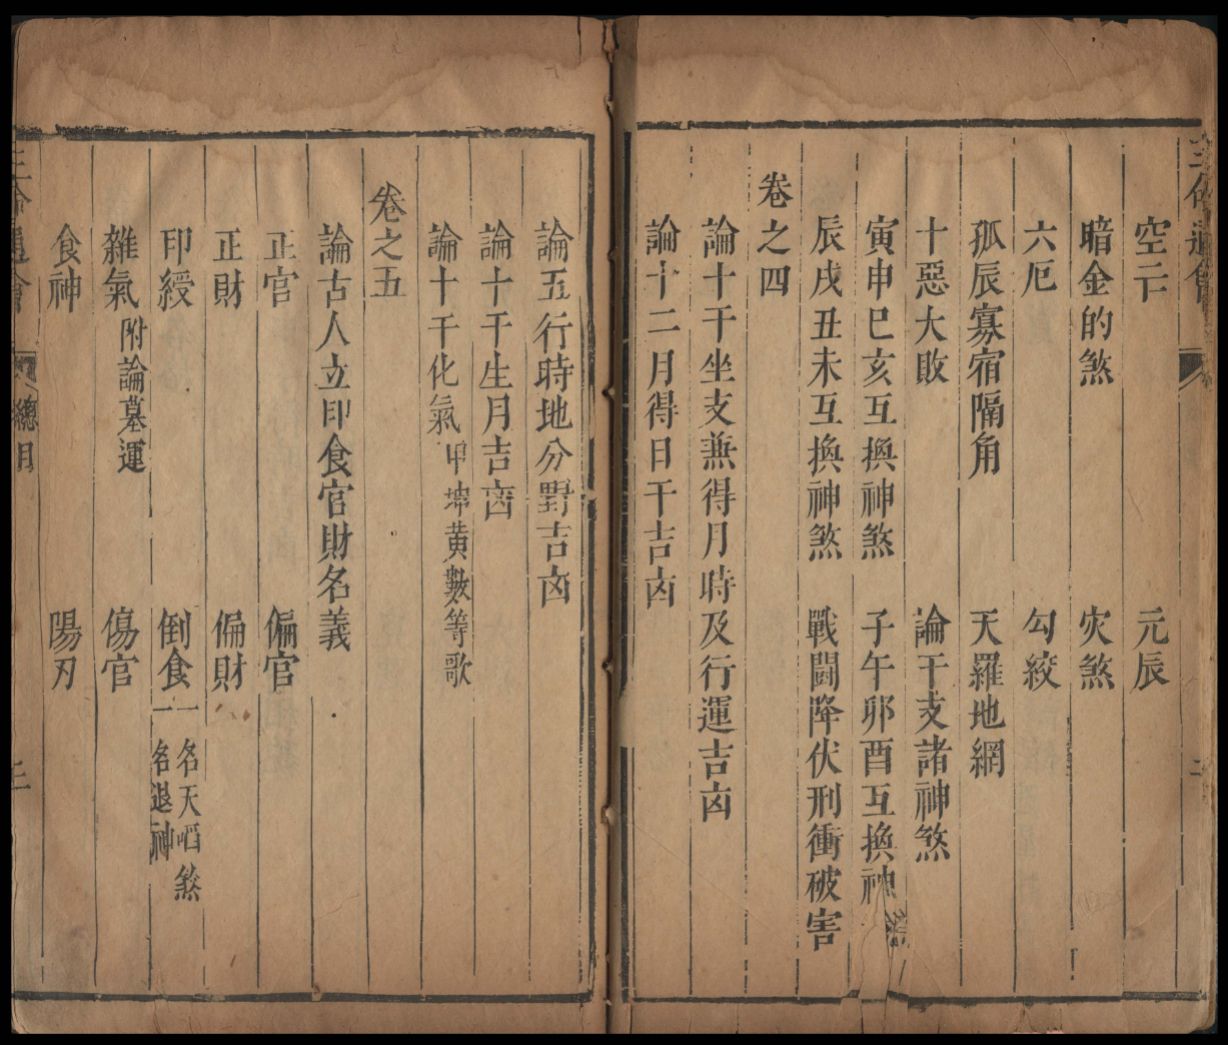 三命通會
空亡 元辰
暗金的煞 灾煞
六厄 勾絞
孤辰寡宿隔角 天羅地網
十惡大敗 論干支諸神煞
寅申巳亥互換神煞 子午卯酉互換神煞
辰戌丑未互換神煞 戰鬪降伏刑衝破害
卷之四
論十干坐支兼得月時及行運吉凶
論十二月得日干吉凶
論五行時地分野吉凶
論十干生月吉凶
論十干化氣 甲 黃數等歌
卷之五
論古人立印食官財名義
正官 偏官
正財 偏財
印綬 倒食 一名天㗖煞 一名退神
雜氣 附論墓運 傷官
食神 陽刃
三命通會 總目 三